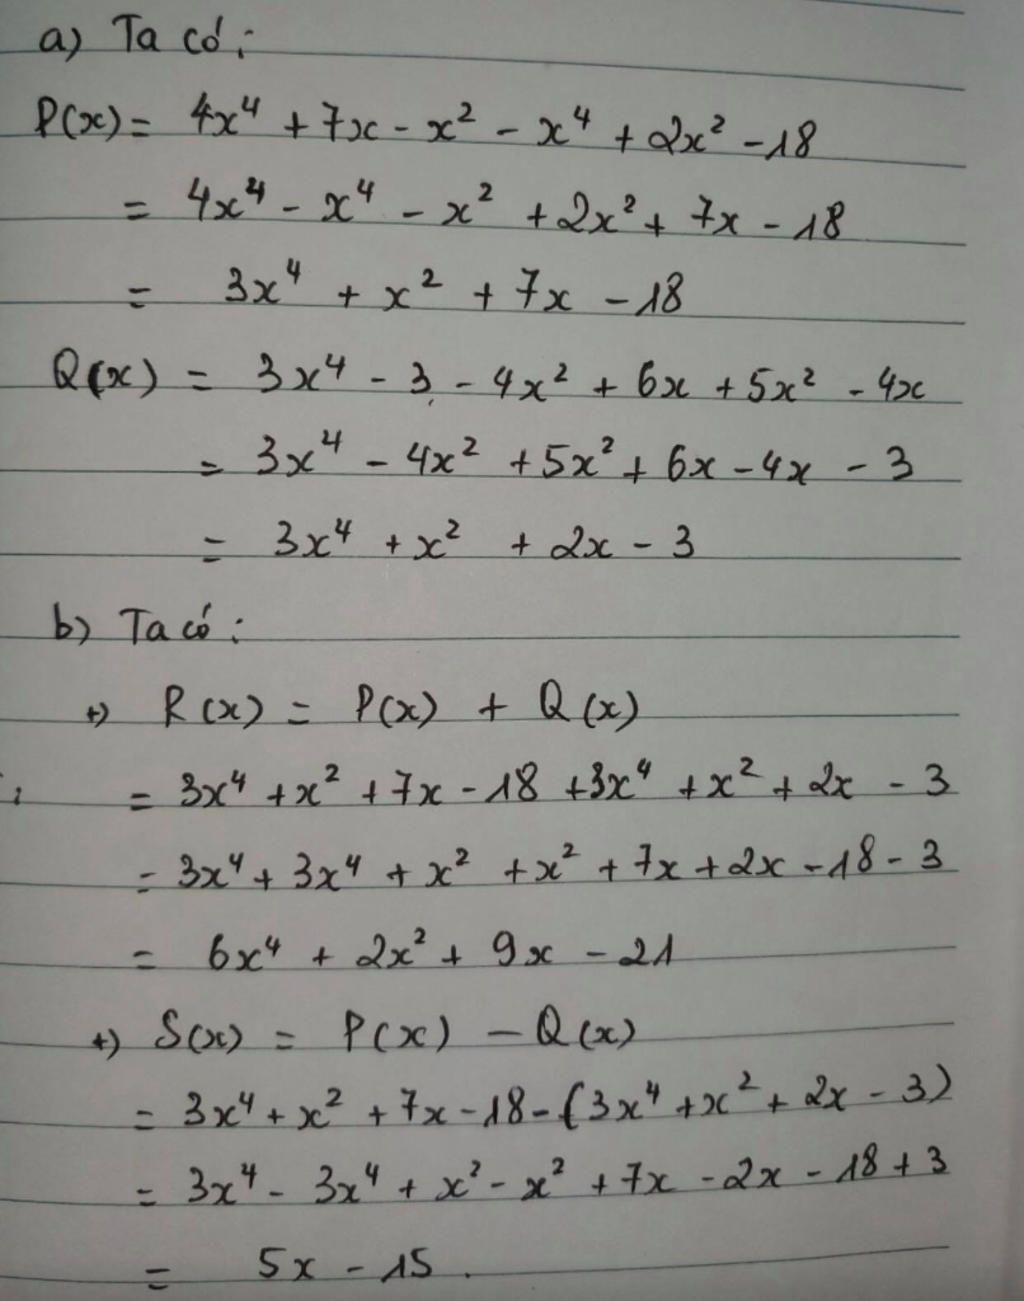 a) Ta có:
P(x) = 4x⁴ + 7x - x² - x⁴ + 2x² - 18
= 4x⁴ - x⁴ - x² + 2x² + 7x - 18
= 3x⁴ + x² + 7x - 18
Q(x) = 3x⁴ - 3 - 4x² + 6x + 5x² - 4x
= 3x⁴ - 4x² + 5x² + 6x - 4x - 3
= 3x⁴ + x² + 2x - 3
b) Ta có:
+) R(x) = P(x) + Q(x)
= 3x⁴ + x² + 7x - 18 + 3x⁴ + x² + 2x - 3
= 3x⁴ + 3x⁴ + x² + x² + 7x + 2x - 18 - 3
= 6x⁴ + 2x² + 9x - 21
+) S(x) = P(x) - Q(x)
= 3x⁴ + x² + 7x - 18 - (3x⁴ + x² + 2x - 3)
= 3x⁴ - 3x⁴ + x² - x² + 7x - 2x - 18 + 3
= 5x - 15.